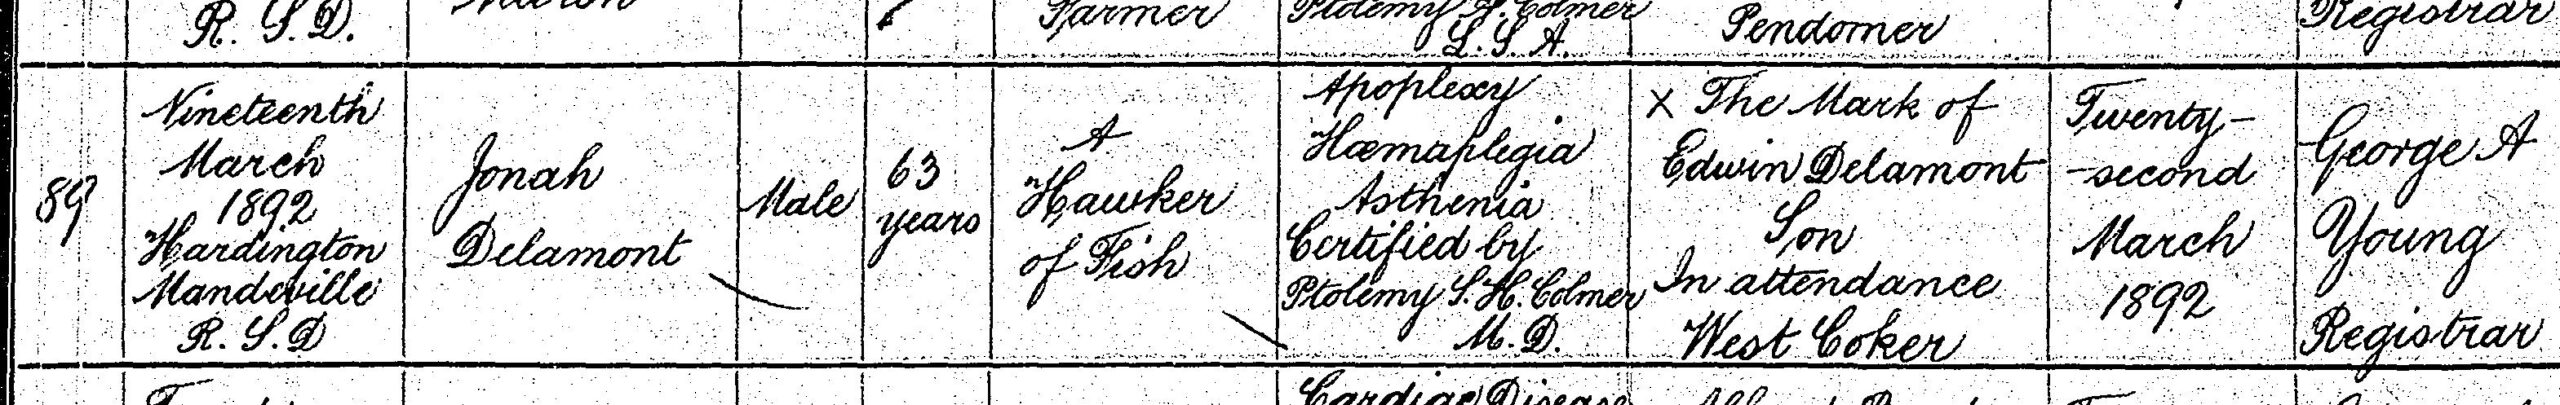 R. S. D.
Farmer
Ptolemy S. H. Colmer
L. S. A.
Pendomer
Registrar
89
Nineteenth
March
1892
Hardington
Mandeville
R. S. D
Jonah
Delamont
Male
63
years
A
Hawker
of Fish
Apoplexy
Hæmaplegia
Asthenia
Certified by
Ptolemy S. H. Colmer
M. D.
X The Mark of
Edwin Delamont
Son
In attendance
West Coker
Twenty-
-second
March
1892
George A
Young
Registrar
Cardiac Disease